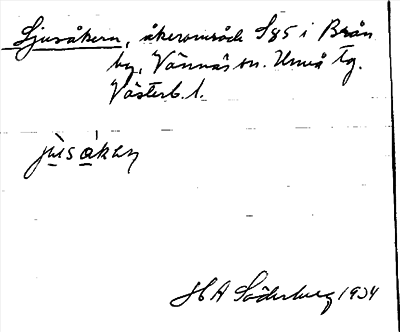 Ljusåkern, åkerområde S 95 i Brån
by, Vännäs sn. Umeå tg.
Västerb. l.
jusakɘɳ
H A Söderberg 1934